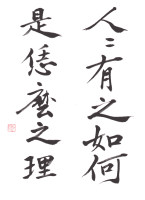 人〻有之如何
是恁麼之理